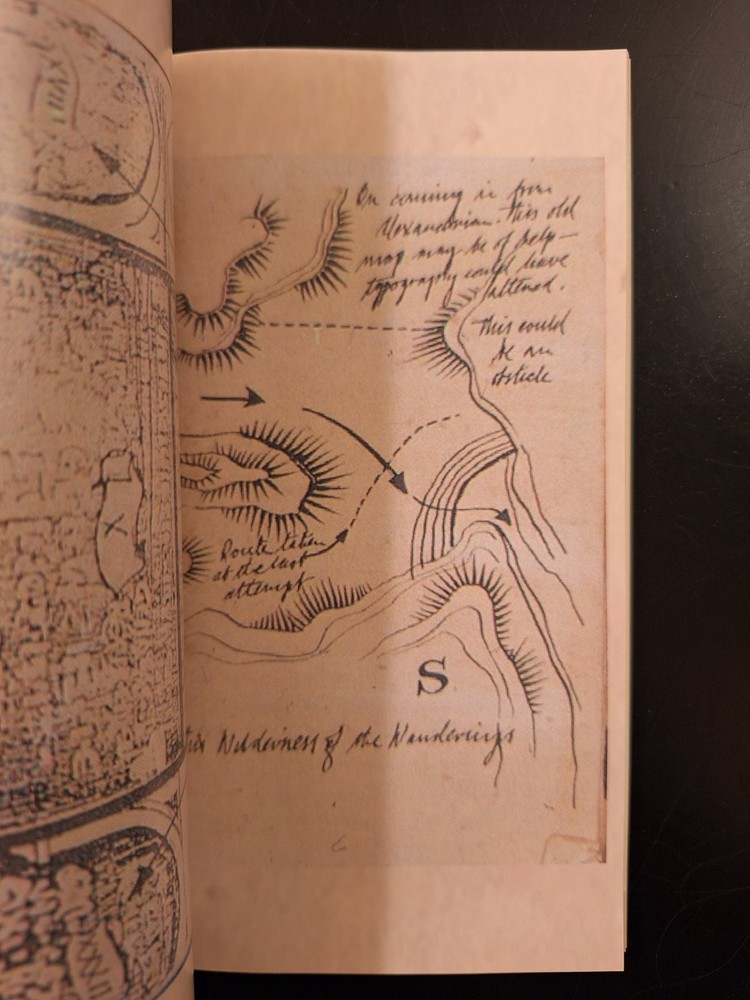 On coming in from
Alexandrian. this old
map may be of help—
topography could have
altered.
This could
be an
obsticle
Route taken
at the last
attempt
S
Wilderness of the Wanderings
X